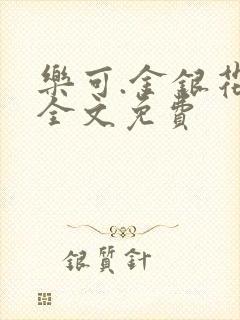 樂可.金銀花
全文免費
銀質針